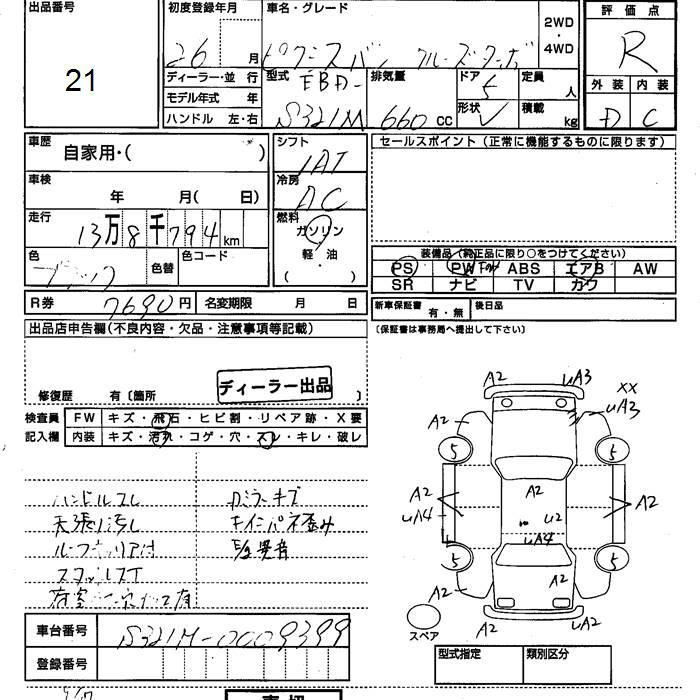 出品番号
21
初度登録年月
26 月
車名・グレード
2WD
・
4WD
評価点
R
外装 内装
D C
ディーラー・並 行
モデル年式 年
ハンドル 左・右
型式 EBD-
S321M
排気量
660 cc
ドア 5
形状 V
定員 人
積載 kg
車歴
自家用・( )
車検
年 月( 日)
走行
13万8千794 km
色
ブラック
色替
色コード
シフト
IAT
冷房
AC
燃料
ガソリン
軽・油
( )
セールスポイント(正常に機能するものに限ります)
装備品(純正品に限り○をつけてください)
PS PW ABS エアB AW
SR ナビ TV カワ
R券 7690円 名変期限 月 日
新車保証書 有・無 後日品
(保証書は事務局へ提出して下さい)
出品店申告欄(不良内容・欠品・注意事項等記載)
ディーラー出品
修復歴 有〔箇所 〕
検査員 FW キズ・飛石・ヒビ割・リペア跡・X要
記入欄 内装 キズ・汚れ・コゲ・穴・スレ・キレ・破レ
ハンドルスレ
天張り汚し
ルーフキャリア付
スタッドレスT
キズ
歪み
異音
A2 UA3
XX
A2 UA3
5 5
A2 A2 A2
UA4 U2
UA4
5 5
A2 A2 A2
A2 UA2
スペア
車台番号 S321M-0009399
登録番号
型式指定 類別区分